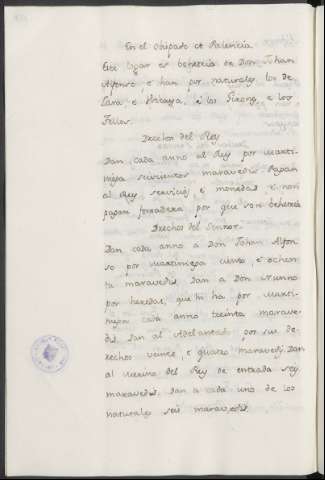 En el Obispado de Palencia
Este logar es behetria de Don Johan
Alfonso, e han por naturales los de
Lara, e Vizcaya, e los Girones, e los
Tellos.
Derechos del Rey
Dan cada anno al Rey por marti-
niega seiscientos maravedis. Pagan
al Rey servicios, e monedas, e non
pagan fonsadera por que son behetria
Derechos del Sennor.
Dan cada anno a Don Johan Alfon-
so por martiniega ciento e ochen-
ta maravedis. Dan a Don Nunno
por heredat, que hi ha por marti-
niega cada anno treinta marave-
dis. Dan al Adelantado por sus de-
rechos veinte, e quatro maravedis. Dan
al Merino del Rey de entrada seys
maravedis. Dan a cada uno de los
naturales seis maravedis.